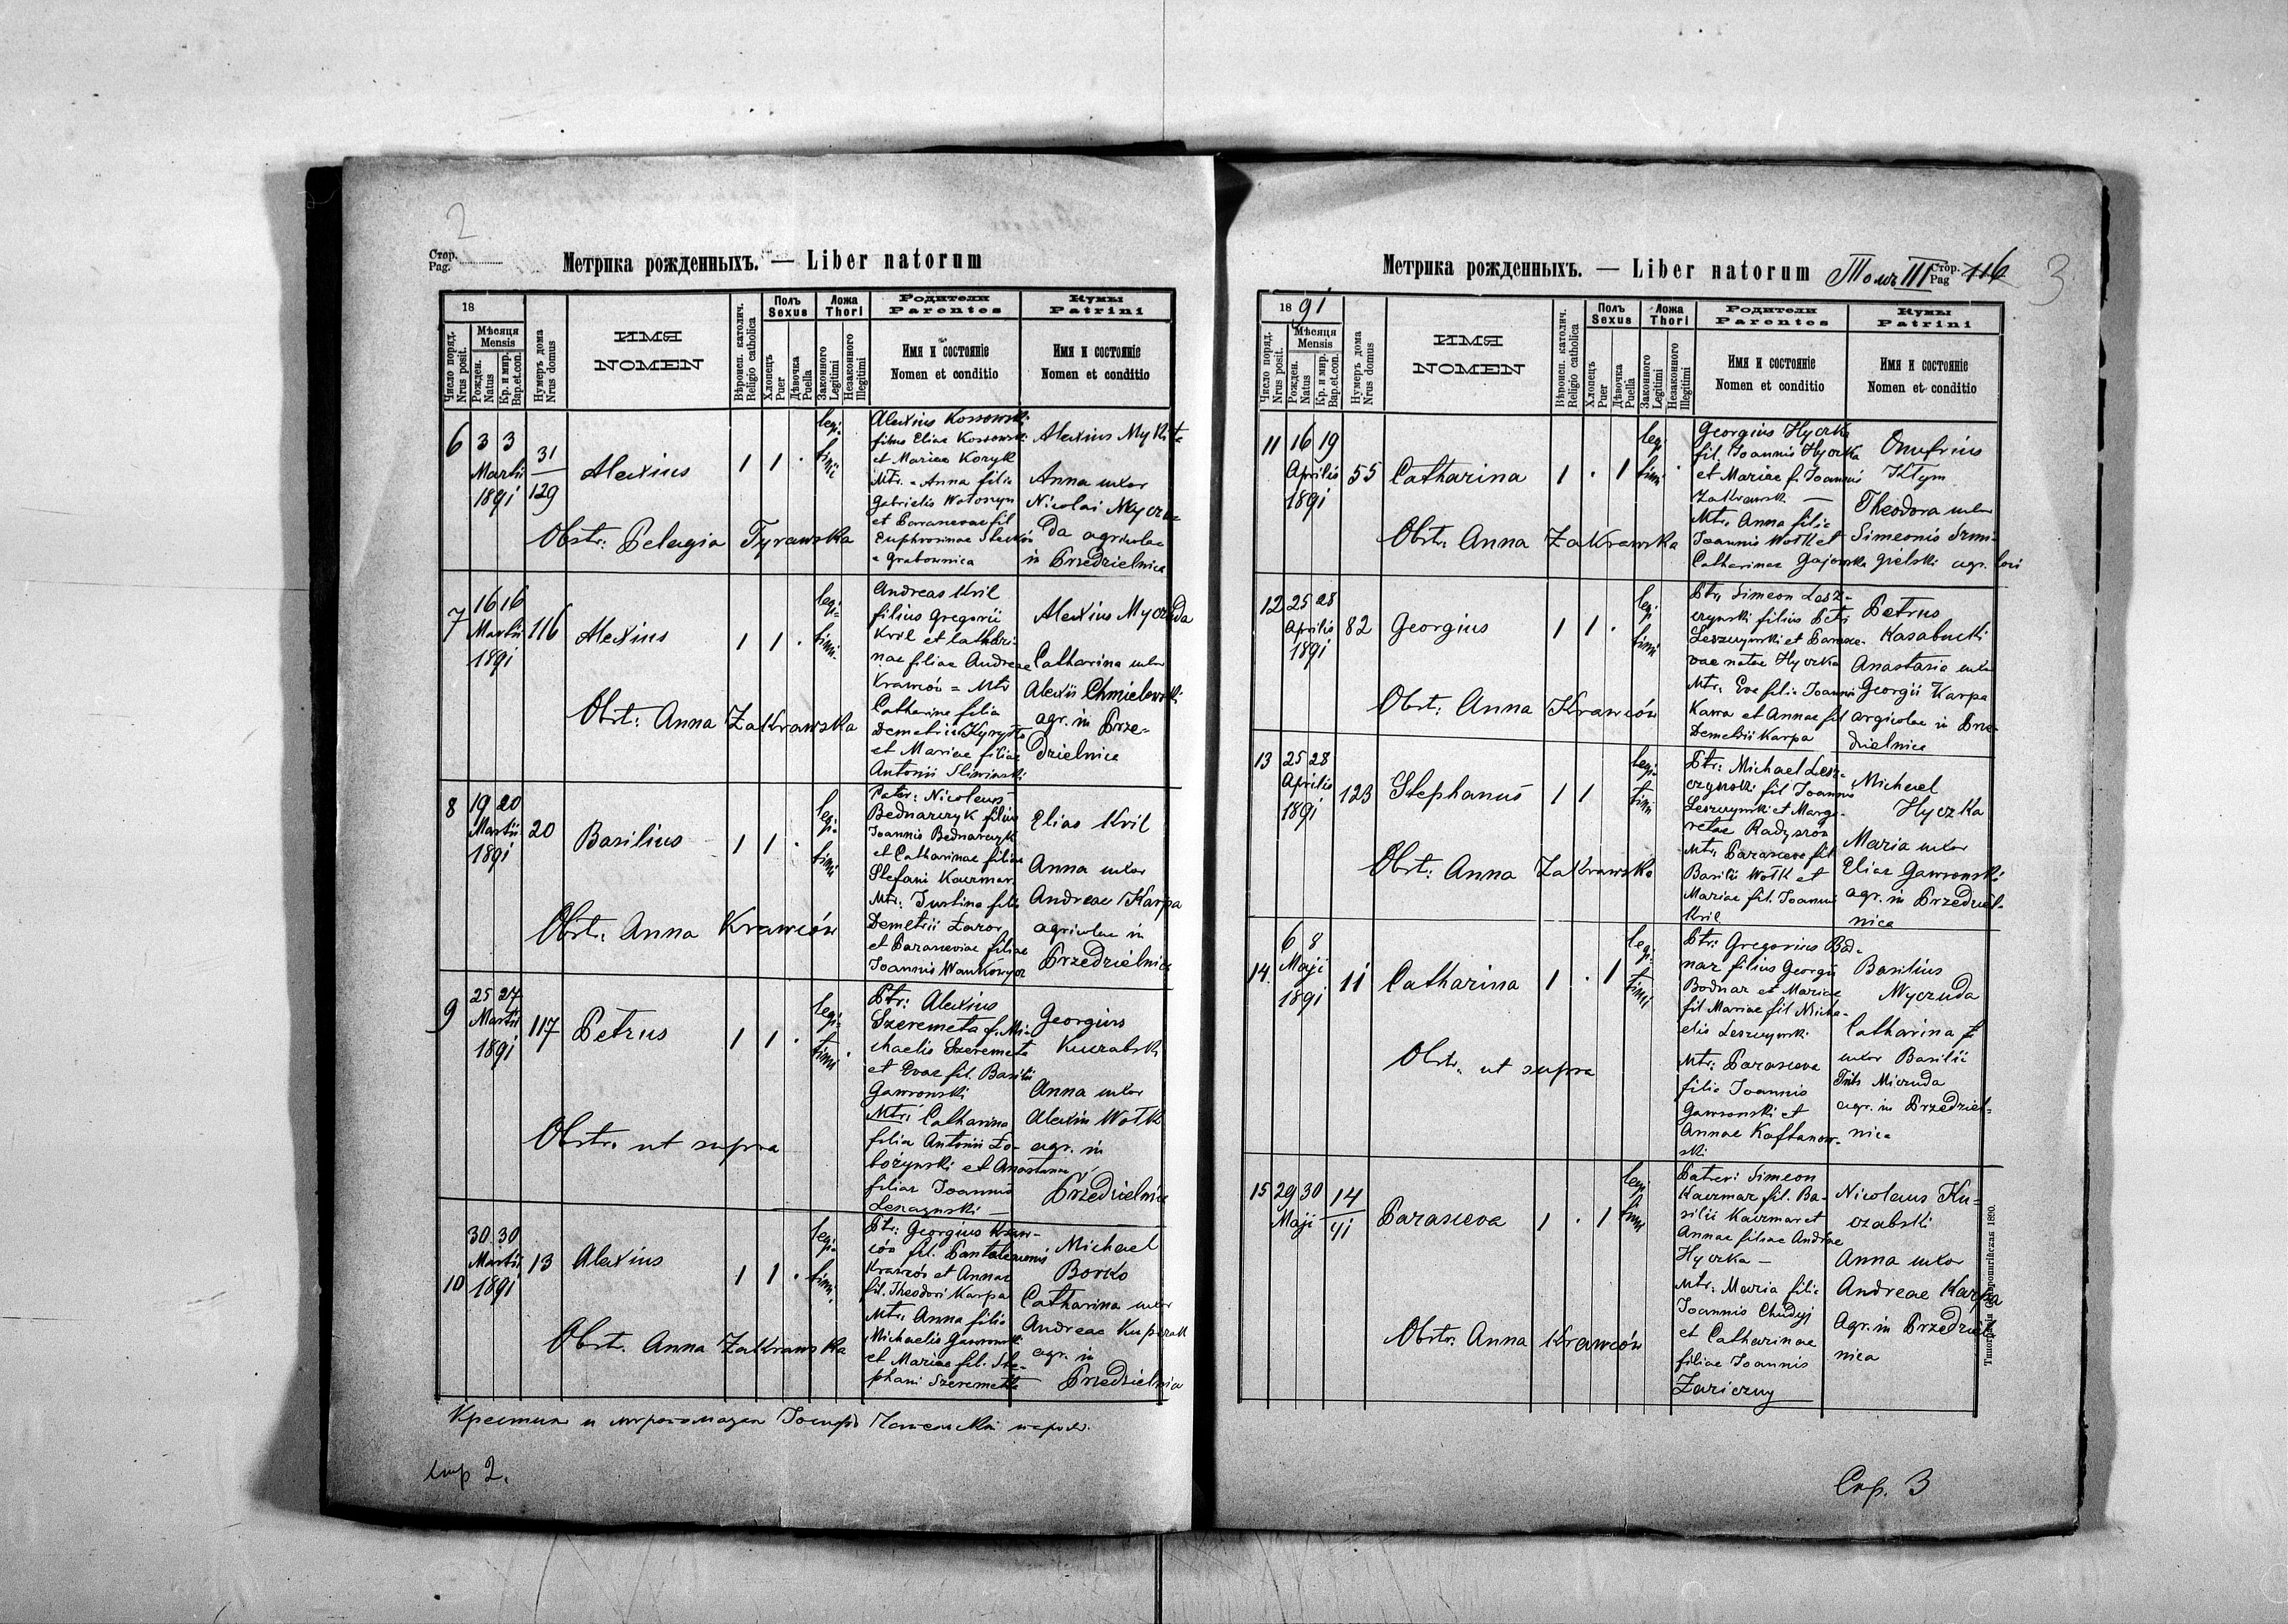 2
Стор.
Pag.
Метрика рожденныхъ. — Liber natorum
18
Число поряд.
Nrus posit.
Мѣсяця
Mensis
Рожден.
Natus
Кр. и мир.
Bap.et.con.
Нумеръ дома
Nrus domus
ИМЯ
NOMEN
Вѣроисп. католич.
Religio catholica
Полъ
Sexus
Хлопецъ
Puer
Дѣвочка
Puella
Ложа
Thori
Законного
Legitimi
Незаконного
Illegitimi
Родители
Parentes
Имя и состояніе
Nomen et conditio
Кумы
Patrini
Имя и состояніе
Nomen et conditio
6
3 3
Martii
1891
31
129
Alexius
1 1 .
legi-
timi
Alexius Kossowski
filius Eliae Kossowski
et Mariae Kozyk
Mtr. = Anna filia
Gabrielis Wołoszyn
et Parascevae fil
Euphrosinae
e Grabownica
Alexius Mykita
Anna uxor
Nicolai Myczu-
da agricolae
in Przedzielnica
Obstr: Pelagia Tyrawska
7
16 16
Martii
1891
116
Alexius
1 1 .
legi-
timi
Andreas Kril
filius Gregorii
Kril et Cathari-
nae filiae Andreae
Krawców = Mtr
Catharina filia
Demetrii
et Mariae filiae
Antonii Sliwinski
Alexius Myczuda
Catharina uxor
Alexii Chmielowski
agr. in Prze-
dzielnica
Obst: Anna Zakrawska
8
19 20
Martii
1891
20
Basilius
1 1 .
legi-
timi
Pater: Nicolaus
Bednarczyk filius
Joannis Bednarczyk
et Catharinae filiae
Stefani Kaczmar
Mtr: Justina filia
Demetrii Łazor
et Parasceviae filiae
Joannis Wańkowycz
Elias Kril
Anna uxor
Andreae Karpa
agricolae in
Przedzielnica
Obst: Anna Krawców
9
25 27
Martii
1891
117
Petrus
1 1 .
legi-
timi
Ptr: Alexius
Szeremeta f. Mi-
chaelis Szeremeta
et Evae fil. Basilii
Gawronski
Mtr: Catharina
filia Antonii Ło-
bożynski et Anastasiae
filiae Joannis
Leszczynski —
Georgius
Kuczabski
Anna uxor
Alexin Wołk
agr. in
Przedzielnica
Obstr. ut supra
10
30 30
Martii
1891
13
Alexius
1 1 .
legi-
timi
Ptr: Georgius Kraw-
ców fil. Pantaleonis
Krawców et Annae
fil. Theodori Karpa
Mtr. Anna filia
Michaelis Gawronski
et Mariae fil. Ste-
phani Szeremeta
Michael
Borko
Catharina uxor
Andreae
agr. in
Przedzielnica
Obst. Anna Zakrawska
стр 2.
Метрика рожденныхъ. — Liber natorum Томъ III Стор.
Pag 116
3
18 91
Число поряд.
Nrus posit.
Мѣсяця
Mensis
Рожден.
Natus
Кр. и мир.
Bap.et.con.
Нумеръ дома
Nrus domus
ИМЯ
NOMEN
Вѣроисп. католич.
Religio catholica
Полъ
Sexus
Хлопецъ
Puer
Дѣвочка
Puella
Ложа
Thori
Законного
Legitimi
Незаконного
Illegitimi
Родители
Parentes
Имя и состояніе
Nomen et conditio
Кумы
Patrini
Имя и состояніе
Nomen et conditio
11
16 19
Aprilis
1891
55
Catharina
1 . 1
legi
timi
Georgius Hyczka
fil. Joannis Hyczka
et Mariae f. Joannis
Zakrawsk —
Mtr. Anna filia
Joannis Wołk et
Catharinae Gajowska
Onufrius
Kłym
Theodora uxor
Simeonis Szmi-
gielski agr. loci
Obstr. Anna Zakrawska
12
25 28
Aprilis
1891
82
Georgius
1 1 .
legi
timi
Ptr. Simeon Lesz-
czynski filius Petri
Leszczynski et Parasce-
vae natae Hyczka
Mtr. Eva filia Joannis
Kawa et Annae fil
Demetrii Karpa
Petrus
Kasabucki
Anastasia uxor
Georgii Karpa
argicolae in Prze-
dzielnica
Obst: Anna Krawców
13
25 28
Aprilis
1891
123
Stephanus
1 1
legi-
timi
Ptr: Michael Lesz-
czynski fil Joannis
Leszczynski et Marga-
retae
Mtr. Parasceva fil
Basilii Wołk et
Mariae fil. Joannis
Kril
Michael
Hyczka
Maria uxor
Eliae Gawronski
agr. in Przedziel-
nica
Obst: Anna Zakrawska
14.
6 8
Maji
1891
11
Catharina
1 . 1
legi-
timi
Ptr: Gregorius Bod-
nar filius Georgii
Bodnar et Mariae
fil Mariae fil Micha-
elis Leszczynski
Mtr: Parasceva
filia Joannis
Gawronski et
Annae Kaftanow-
ski
Basilius
Myczuda
Catharina
uxor Basilii
Miczuda
agr. in Przedziel-
nica
Obstr. ut supra
15
29 30
Maji
14
41
Parasceva
1 . 1
legi
timi
Simeon
Kaczmar fil. Ba-
silii Kaczmar et
Annae filiae Andreae
Hyczka —
Mtr. Maria filia
Joannis Chudyj
et Catharinae
filiae Joannis
Zariczny
Nicolaus Ku-
czabski
Anna uxor
Andreae Karpa
Agr. in Przedziel-
nica
Obstr: Anna Krawców
Стр. 3